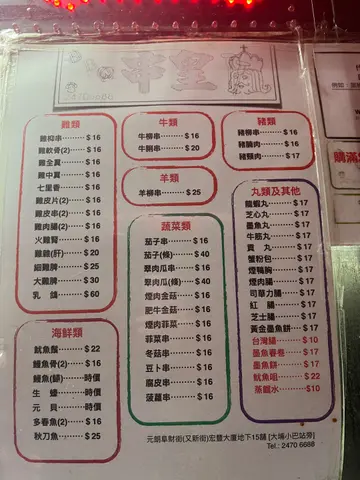 串皇
雞類
雞柳串 $16
雞軟骨(2) $16
雞全翼 $16
雞中翼 $16
七里香 $16
雞皮片(2) $16
雞皮串(2) $16
雞肉腸(2) $16
火雞腎 $16
雞雜(肝) $20
細雞脾 $25
大雞脾 $30
乳鴿 $60
海鮮類
魷魚鬚 $22
鱔魚骨(2) $16
鱔魚(歸) 時價
生蠔 時價
元貝 時價
多春魚(2) $16
秋刀魚 $25
牛類
牛柳串 $16
牛脷串 $20
羊類
羊柳串 $25
蔬菜類
茄子串 $16
茄子(條) $40
翠肉瓜串 $16
翠肉瓜(條) $40
煙肉金菇 $16
肥牛金菇 $16
煙肉菲菜 $16
菲菜串 $16
冬菇串 $16
豆卜串 $16
腐皮串 $16
菠蘿串 $16
豬類
豬柳串 $16
豬腩肉 $16
豬頸肉 $17
丸類及其他
龍蝦丸 $17
芝心丸 $17
墨魚丸 $17
牛筋丸 $17
貢丸 $17
蟹粉包 $17
煙鴨胸 $17
煙肉腸 $17
司華力腸 $17
紅腸 $17
芝士腸 $17
黃金墨魚餅 $17
台灣腸 $10
墨魚春卷 $17
墨魚餅 $17
魷魚咀 $22
蒸餾水 $10
元朗阜財街(又新街)宏豐大廈地下15舖 [大埔小巴站旁]
Tel.: 2470 6688
例如
購滿